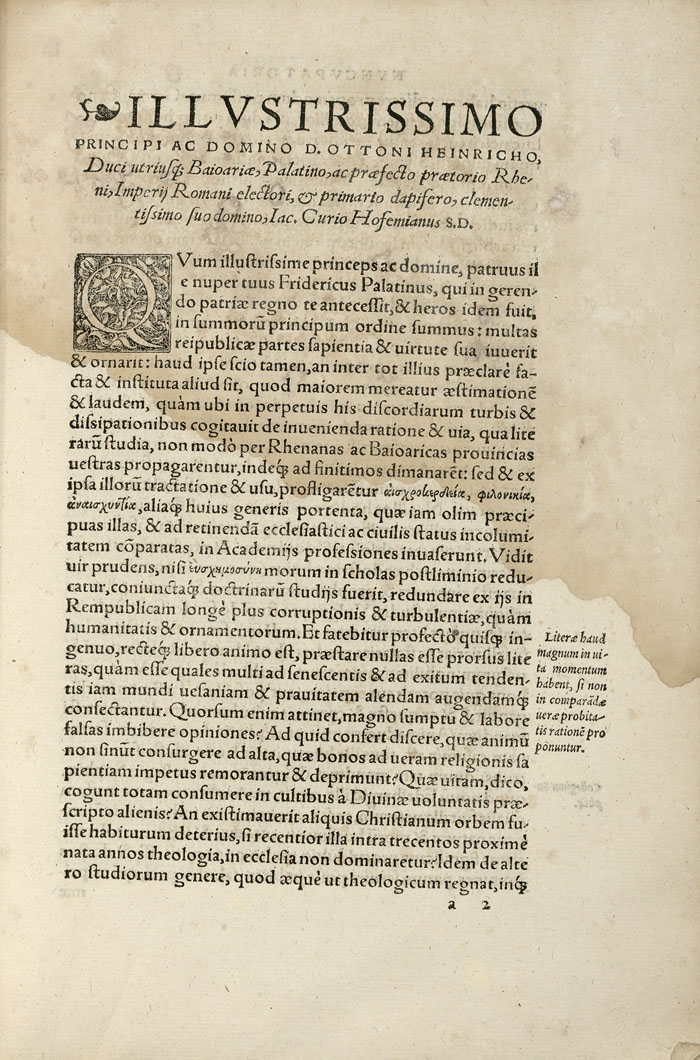 ILLVSTRISSIMO
PRINCIPI AC DOMINO D. OTTONI HEINRICHO,
Duci utriusq́; Baioariæ, Palatino, ac præfecto prætorio Rhe-
ni, Imperij Romani electori, & primario dapifero, clemen-
tissimo suo domino, Iac. Curio Hofemianus S.D.
QVum illustrissime princeps ac domine, patruus il
e nuper tuus Fridericus Palatinus, qui in geren-
do patriæ regno te antecessit, & heros idem fuit,
in summorũ principum ordine summus: multas
reipublicæ partes sapientia & uirtute sua iuuerit
& ornarit: haud ipse scio tamen, an inter tot illius præclarè fa-
cta & instituta aliud sit, quod maiorem mereatur æstimationẽ
& laudem, quàm ubi in perpetuis his discordiarum turbis &
dissipationibus cogitauit de inuenienda ratione & uia, qua lite
rarũ studia, non modò per Rhenanas ac Baioaricas prouincias
uestras propagarentur, indeq́; ad finitimos dimanarẽt: sed & ex
ipsa illorũ tractatione & usu, profligarẽtur αἰσχροκερδεία, φιλονικία,
ἀναισχυντία, aliaq́; huius generis portenta, quæ iam olim præci-
puas illas, & ad retinendã ecclesiastici ac ciuilis status incolumi-
tatem cõparatas, in Academijs professiones inuaserunt. Vidit
uir prudens, nisi εὐσχημοσύνη morum in scholas postliminio redu-
catur, coniunctaq́; doctrinarũ studijs fuerit, redundare ex ijs in
Rempublicam longè plus corruptionis & turbulentiæ, quàm
humanitatis & ornamentorum. Et fatebitur profectò quisq́; in-
genuo, recteq́; libero animo est, præstare nullas esse prorsus lite
ras, quàm esse quales multi ad senescentis & ad exitum tenden-
tis iam mundi uesaniam & prauitatem alendam augendamq́;
consectantur. Quorsum enim attinet, magno sumptu & labore
falsas imbibere opiniones? Ad quid confert discere, quæ animũ
non sinũt consurgere ad alta, quæ bonos ad ueram religionis sa
pientiam impetus remorantur & deprimunt? Quæ uitam, dico,
cogunt totam consumere in cultibus à Diuinæ uoluntatis præ-
scripto alienis? An existimauerit aliquis Christianum orbem fu-
isse habiturum deterius, si recentior illa intra trecentos proximè
nata annos theologia, in ecclesia non dominaretur? Idem de alte
ro studiorum genere, quod æquè ut theologicum regnat, inq́;
a 2
Literæ haud
magnum in ui-
ta momentum
habent, si non
in comparãdæ
ueræ probita-
tis rationẽ pro
ponuntur.